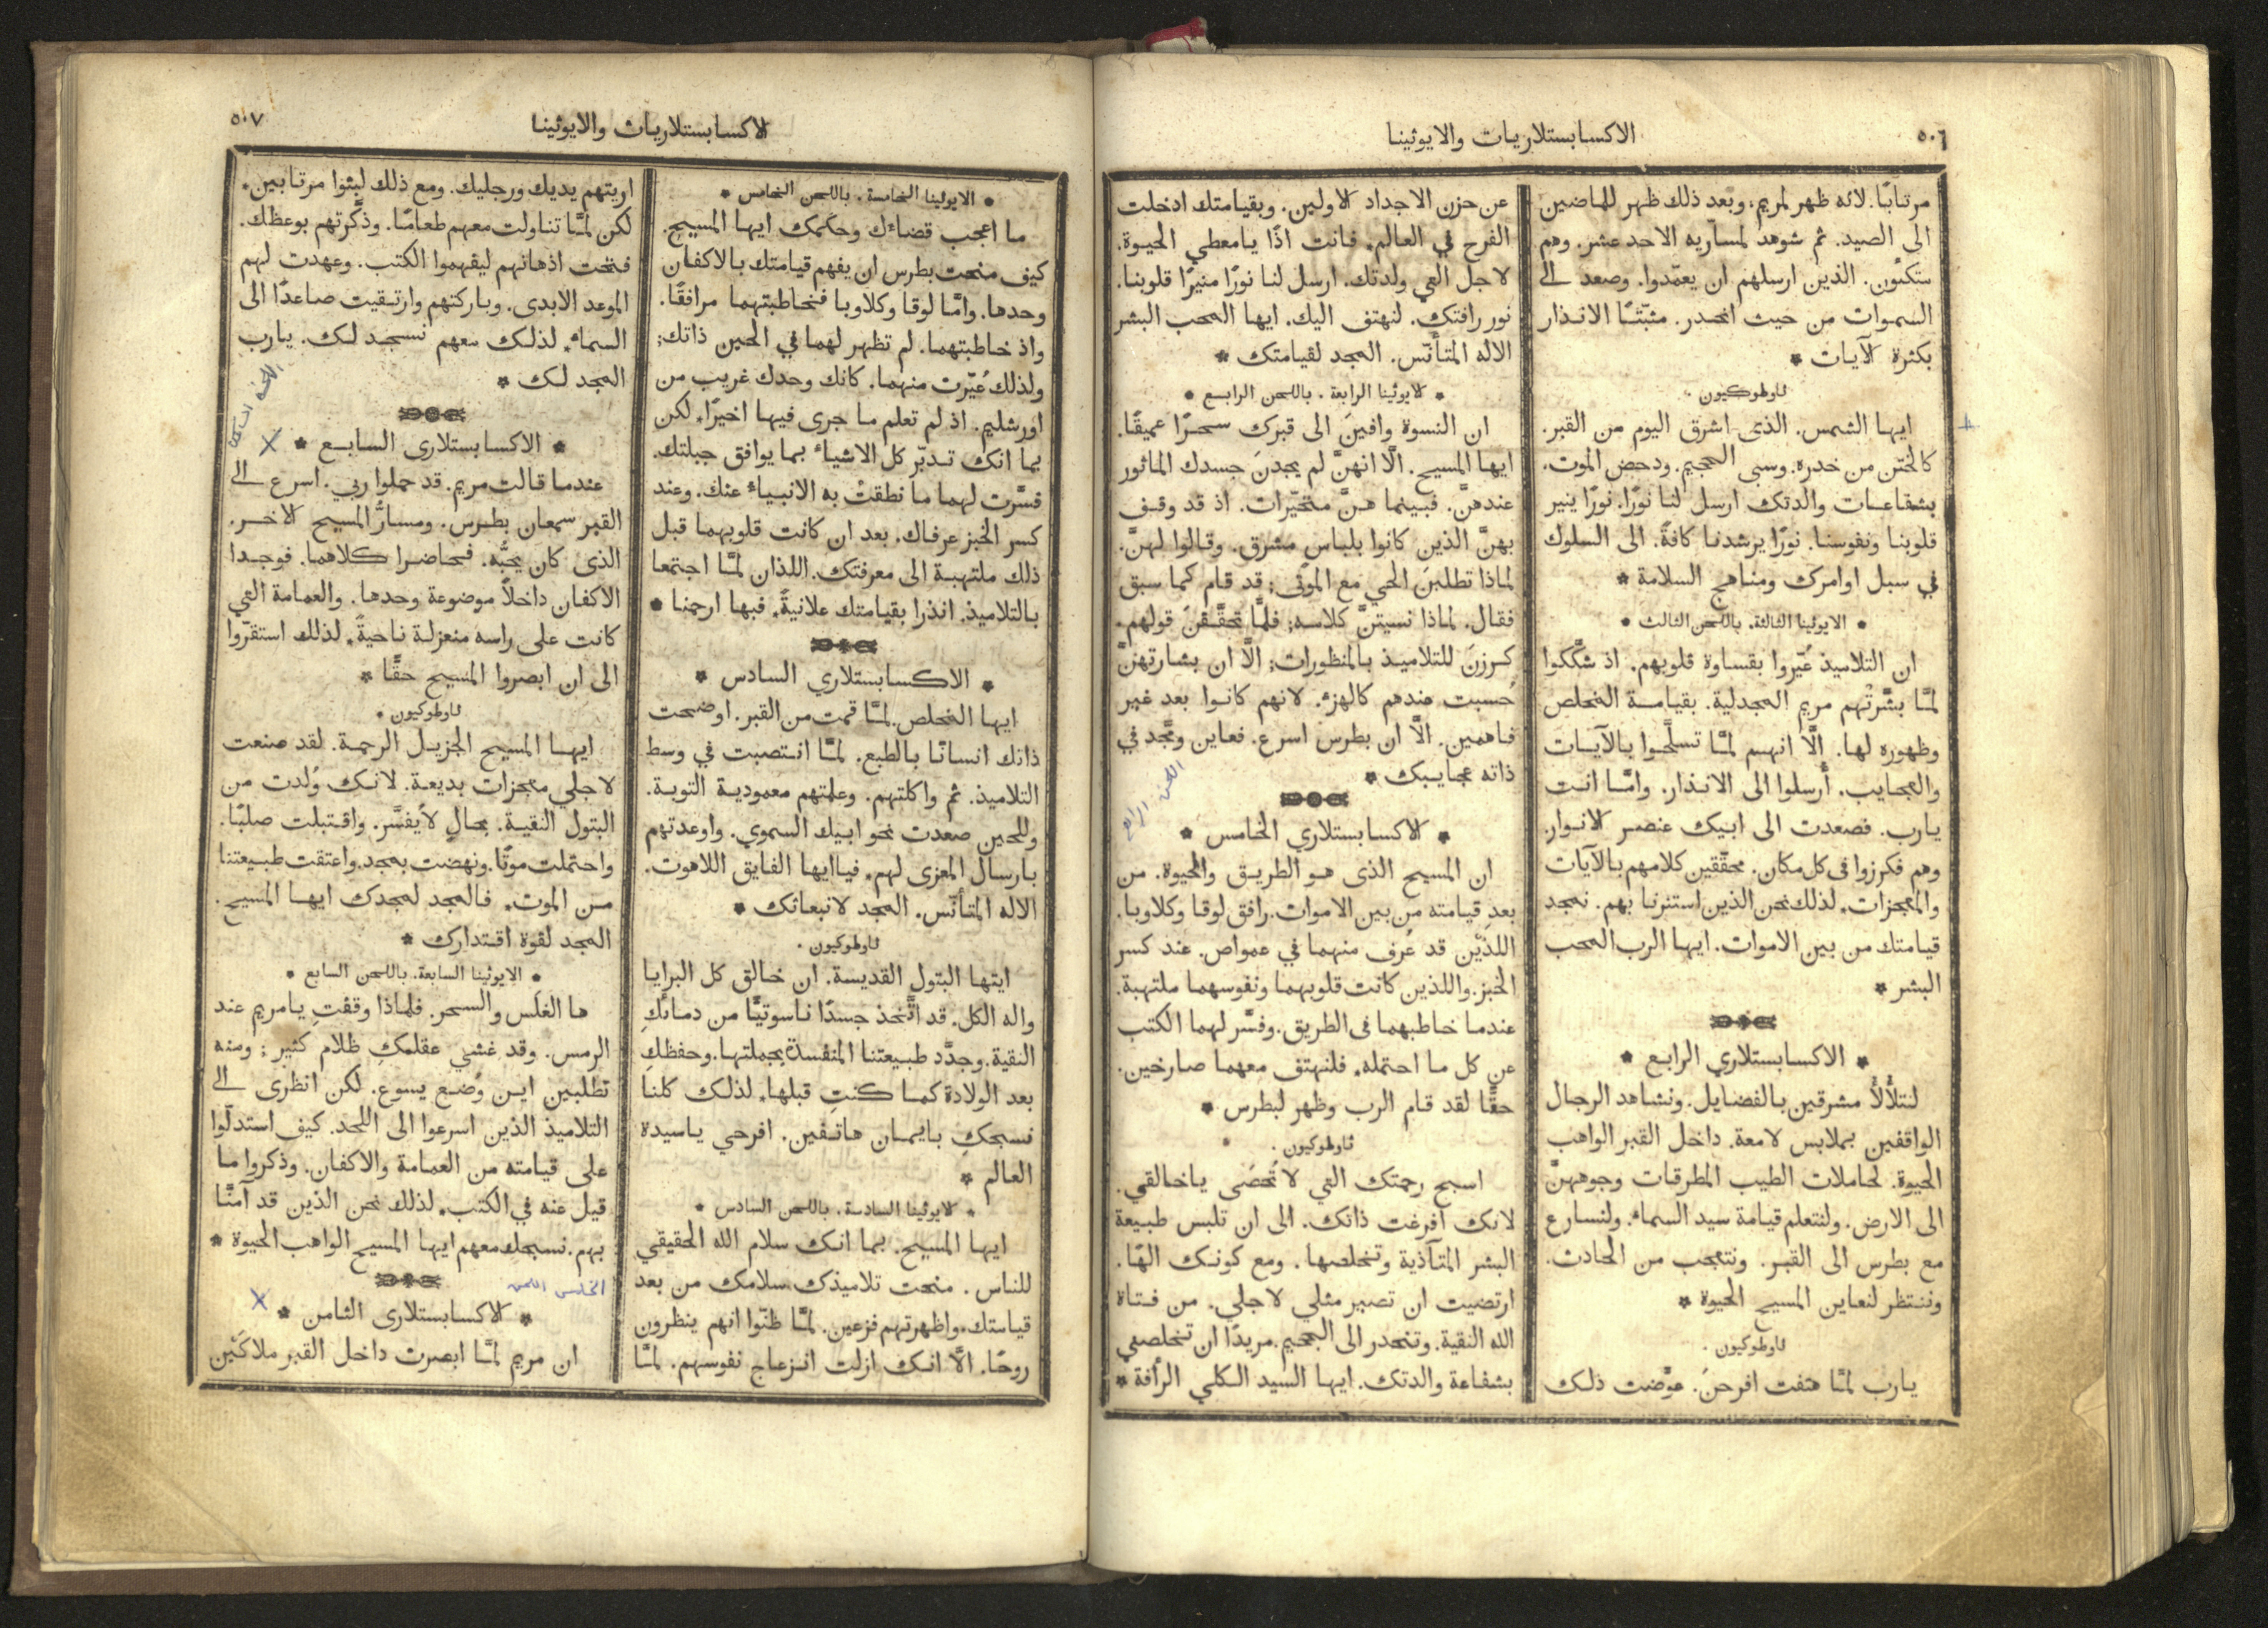 ٥٠٦
الاكسابستلاريات والايوثينا
مرتابًا. لانه ظهر لمريم، وبعد ذلك ظهر للماضين
الى الصيد. ثم شوهد لمسآريه الاحد عشر. وهم
ستكنّون. الذين ارسلهم ان يعمّدوا. وصعد الى
السموات من حيث انحدر. مثبّتًا الانذار
بكثرة الآيات *
ثاوطوكيون .
ايها الشمس. الذى اشرق اليوم من القبر.
كالختن من خدره. وسبى الجحيم. ودحض الموت.
بشفاعات والدتك ارسل لنا نورًا. نورًا ينير
قلوبنا ونفوسنا. نورًا يرشدنا كافةً. الى السلوك
في سبل اوامرك ومناهج السلامة *
* الايوثينا الثالثة. باللحن الثالث *
ان التلاميذ عُيّروا بقساوة قلوبهم. اذ شكَّكوا
لمَّا بشَّرتْهم مريم المجدلية. بقيامة المخلص
وظهوره لها. الَّا انهم لمَّا تسلَّحوا بالآيات
والعجايب. أُرسلوا الى الانذار. وامَّا انت
يارب. فصعدت الى ابيك عنصر الانوار.
وهم فكرزوا فى كل مكان. محقّقين كلامهم بالآيات
والمعجزات. لذلك نحن الذين استنرنا بهم. نمجد
قيامتك من بين الاموات. ايها الرب المحب
البشر *
* الاكسابستلاري الرابع *
لنتلألأ مشرقين بالفضايل. ونشاهد الرجال
الواقفين بملابس لامعة. داخل القبر الواهب
الحيوة. لحاملات الطيب المطرقات وجوههنَّ
الى الارض. ولنتعلم قيامة سيد السماء. ولنسارع
مع بطرس الى القبر. ونتعجب من الحادث.
وننتظر لنعاين المسيح الحيوة *
ثاوطوكيون .
يارب لمَّا هتفت افرحنَ. عوّضت ذلك
عن حزن الاجداد الاولين. وبقيامتك ادخلت
الفرح في العالم. فانت اذًا يا معطي الحيوة.
لاجل التي ولدتك. ارسل لنا نورًا منيرًا قلوبنا.
نور رافتك. لنهتف اليك. ايها المحب البشر
الاله المتأنّس. المجد لقيامتك *
* الايوثينا الرابعة . باللحن الرابع *
ان النسوة وافينَ الى قبرك سحرًا عميقًا.
ايها المسيح. الَّا انهنَّ لم يجدنَ جسدك الماثور
عندهنَّ. فبينما هنَّ متحيّرات. اذ قد وقف
بهنَّ الذين كانوا بلباس مشرق. وقالوا لهنَّ.
لماذا تطلبنَ الحي مع الموتى; قد قام كما سبق
فقال. لماذا نسيتنَّ كلامه; فلمَّا تحقَّقنَ قولهم.
كرزنَ للتلاميذ بالمنظورات; الَّا ان بشارتهنَّ
حُسبت عندهم كالهزء. لانهم كانوا بعد غير
فاهمين. الَّا ان بطرس اسرع. فعاين ومجَّد في
ذاته عجايبك *
اللحن الرابع
* الاكسابستلاري الخامس *
ان المسيح الذى هو الطريق والحيوة. من
بعد قيامته من بين الاموات. رافق لوقا وكلاوبا.
اللذَيْن قد عُرف منهما في عمواص. عند كسر
الخبز. واللذين كانت قلوبهما ونفوسهما ملتهبة.
عندما خاطبهما فى الطريق. وفسَّر لهما الكتب
عن كل ما احتمله. فلنهتف معهما صارخين.
حقًّا لقد قام الرب وظهر لبطرس *
ثاوطوكيون .
اسبح رحمتك التي لا تُحصَى ياخالقي.
لانك افرغت ذاتك. الى ان تلبس طبيعة
البشر المتآذية وتخلصها. ومع كونك الهًا.
ارتضيت ان تصير مثلي لاجلي. من فتاة
الله النقية. وتنحدر الى الجحيم. مريدًا ان تخلصني
بشفاعة والدتك. ايها السيد الكلي الرأفة *
الاكسابستلاريات والايوثينا
٥٠٧
* الايوثينا الخامسة. باللحن الخامس *
ما اعجب قضاءك وحكمك ايها المسيح.
كيف منحت بطرس ان يفهم قيامتك بالاكفان
وحدها. وامَّا لوقا وكلاوبا فخاطبتهما مرافقًا.
واذ خاطبتهما. لم تظهر لهما في الحين ذاتك;
ولذلك عُيّرت منهما. كانك وحدك غريب من
اورشليم. اذ لم تعلم ما جرى فيها اخيرًا. لكن
بما انك تدبّر كل الاشياء بما يوافق جبلتك.
فسَّرت لهما ما نطقتْ به الانبياء عنك. وعند
كسر الخبز عرفاك. بعد ان كانت قلوبهما قبل
ذلك ملتهبة الى معرفتك. اللذان لمَّا اجتمعا
بالتلاميذ. انذرا بقيامتك علانيةً. فبها ارحمنا *
* الاكسابستلاري السادس *
ايها المخلص. لمَّا قمت من القبر. اوضحت
ذاتك انسانًا بالطبع. لمَّا انتصبت في وسط
التلاميذ. ثم واكلتهم. وعلمتهم معمودية التوبة.
وللحين صعدت نحو ابيك السموي. واوعدتهم
بارسال المعزى لهم. فياايها الفايق اللاهوت.
الاله المتأنّس. المجد لانبعاثك *
ثاوطوكيون .
ايتها البتول القديسة. ان خالق كل البرايا
واله الكل. قد اتَّخذ جسدًا ناسوتيًّا من دمائكِ
النقية. وجدَّد طبيعتنا المنفسدة بجملتها. وحفظكِ
بعد الولادة كما كنتِ قبلها. لذلك كلنا
نسبحكِ بايمان هاتفين. افرحي ياسيدة
العالم *
* الايوثينا السادسة. باللحن السادس *
ايها المسيح. بما انك سلام الله الحقيقي
للناس. منحت تلاميذك سلامك من بعد
قيامتك. واظهرتهم فزعين. لمَّا ظنّوا انهم ينظرون
روحًا. الَّا انك ازلت انزعاج نفوسهم. لمَّا
اريتهم يديك ورجليك. ومع ذلك لبثوا مرتابين.
لكن لمَّا تناولت معهم طعامًا. وذكَّرتهم بوعظك.
فتحت اذهانهم ليفهموا الكتب. وعهدت لهم
الموعد الابدى. وباركتهم وارتقيت صاعدًا الى
السماء. لذلك معهم نسجد لك. يارب
المجد لك *
* الاكسابستلارى السابع *
عندما قالت مريم. قد حملوا ربي. اسرع الى
القبر سمعان بطرس. ومسارُّ المسيح الاخر.
الذى كان يحبُّه. فحاضرا كلاهما. فوجدا
الاكفان داخلًا موضوعة وحدها. والعمامة التي
كانت على راسه منعزلة ناحيةً. لذلك استقرّوا
الى ان ابصروا المسيح حقًّا *
ثاوطوكيون .
ايها المسيح الجزيل الرحمة. لقد صنعت
لاجلي معجزات بديعة. لانك وُلدت من
البتول النقية. بحالٍ لا يفسَّر. واقتبلت صلبًا.
واحتملت موتًا. ونهضت بمجد. واعتقت طبيعتنا
من الموت. فالمجد لمجدك ايها المسيح.
المجد لقوة اقتدارك *
* الايوثينا السابعة. باللحن السابع *
ها الغلَس والسحر. فلماذا وقفتِ يامريم عند
الرمس. وقد غشي عقلكِ ظلام كثير; ومنه
تطلبين اين وُضع يسوع. لكن انظرى الى
التلاميذ الذين اسرعوا الى اللحد. كيف استدلّوا
على قيامته من العمامة والاكفان. وذكروا ما
قيل عنه في الكتب. لذلك نحن الذين قد آمنَّا
بهم. نسبحك معهم ايها المسيح الواهب الحيوة *
الخامس اللحن
* الاكسابستلارى الثامن *
ان مريم لمَّا ابصرت داخل القبر ملاكَيْن